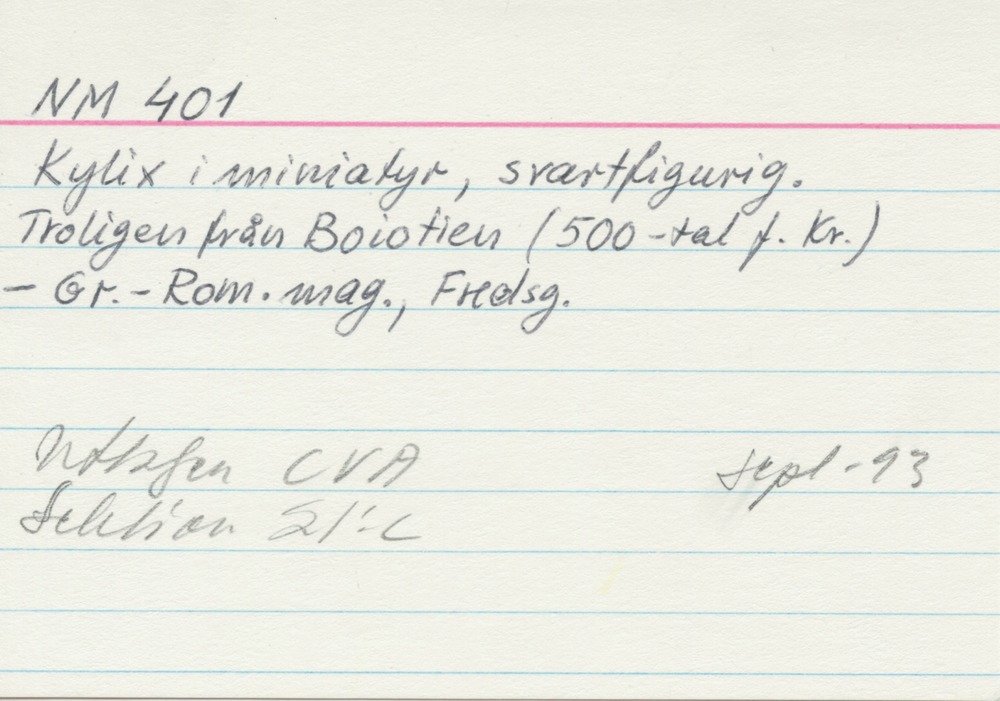 NM 401
Kylix i miniatyr, svartfigurig.
Troligen från Boiotien (500-tal f. Kr.)
- Gr.-Rom. mag., Fredsg.
CVA sept -93
Sektion